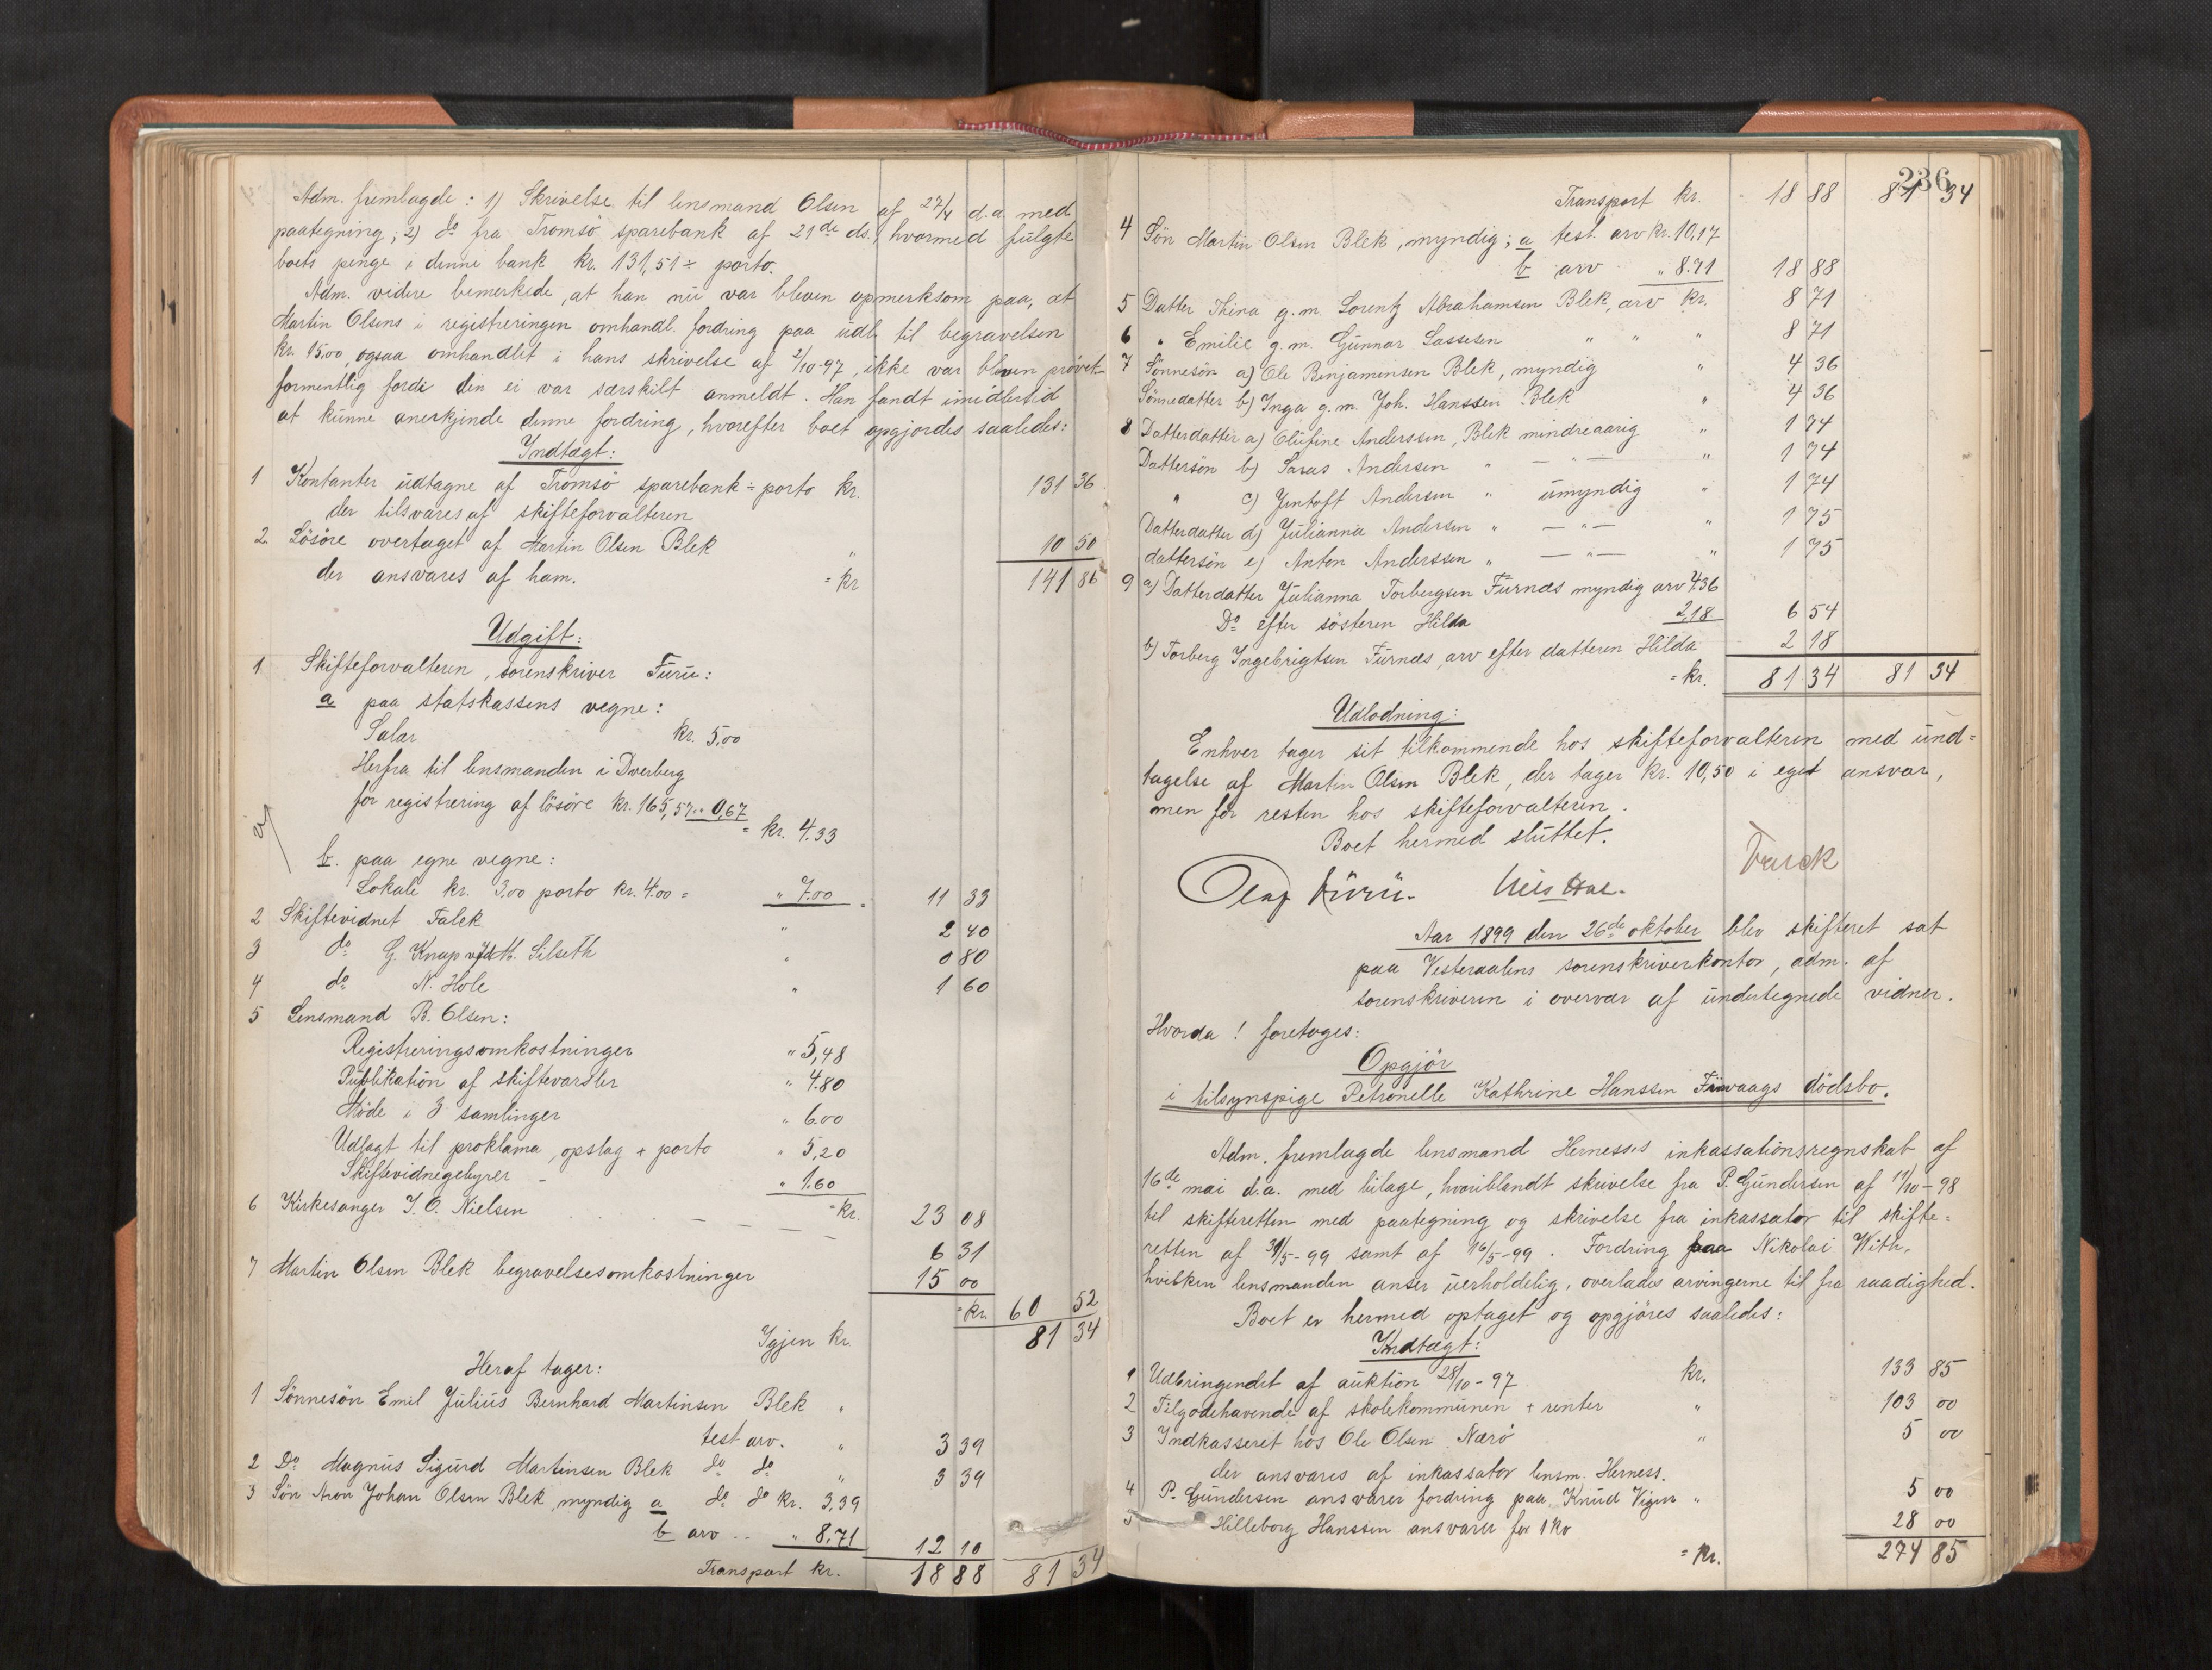 Adm. fremlagde: 1) Skrivelse til lensmand Olsen af 27/4 d.a. med
paategning; 2) do fra Tromsö sparebank af 21de ds., hvormed fulgte
boets penge i denne bank kr. 131,51 ÷ porto.
Adm. videre bemerkede, at han nu var bleven opmerksom paa, at
Martin Olsens i registreringen omhandl. fordring paa udl. til begravelsen
kr. 15,00, ogsaa omhandlet i hans skrivelse af 2/10-97, ikke var bleven prövet
formentlig fordi den ei var særskilt anmeldt. Han fandt imidlertid
at kunne anerkjende denne fordring, hvorefter boet opgjordes saaledes:
Indtægt:
1 Kontanter udtagne af Tromsö sparebank ÷ porto kr. 131 36
der tilsvares af skifteforvalteren
2 Lösöre overtaget af Martin Olsen Blek " 10 50
der ansvares af ham. = kr 141 86
Udgift:
1 Skifteforvalteren, sorenskriver Furu:
a paa statskassens vegne:
Salær kr. 5,00
Herfra til lensmanden i Dverberg
for registrering af lösöre kr. 165,57 .. 0,67
= kr. 4.33
b. paa egne vegne:
Lokale kr. 3.00 porto kr. 4.00 = " 7.00 = 11 33
2 Skiftevidnet Falck " 2 40
3 do G. Knap v/ M. Silseth " 0 80
4 do N. Hole " 1 60
5 Lensmand B. Olsen:
Registreringsomkostninger " 5,48
Publikation af skiftevarsler " 4.80
Möde i 3 samlinger " 6.00
Udlagt til proklama, opslag + porto " 5,20
Skiftevidnegebyrer - " 1.60
= kr. 23 08
6 Kirkesanger J. O. Nielsen 6 31
7 Martin Olsen Blek begravelsesomkostninger 15 00
= kr. 60 52
Igjen kr. 81 34
Heraf tager:
1 Sönnesön Emil Julius Bernhard Martinsen Blek "
test arv. " 3 39
2 Do Magnus Sigurd Martinsen Blek do do " 3 39
3 Sön Aron Johan Olsen Blek, myndig a do do kr. 3,39
b arv .. " 8,71 12 10
Transport kr. 18 88 81 34
236
Transport kr. 18 88 81 34
4 Sön Martin Olsen Blek, myndig; a test. arv kr. 10,17
b arv " 8.71 18 88
5 Datter Thina g.m. Lorentz Abrahamsen Blek, arv kr. 8 71
6 " Emilie g.m. Gunnar Lassesen " " " 8 71
7 Sönnesön a) Ole Benjaminsen Blek, myndig " 4 36
Sönnedatter b) Inga g.m. Joh. Hanssen Blek " 4 36
8 Datterdatter a) Olufine Anderssen, Blek mindreaarig " 1 74
Dattersön b) Andersen " — " — " 1 74
" c) Jentoft Andersen " umyndig " 1 74
Datterdatter d) Julianna Andersen " — " — " 1 75
dattersön e) Anton Anderssen " — " — " 1 75
9 a) Datterdatter Julianna Torbergsen Furnæs myndig arv 4 36
Do efter sösteren Hilda 2,18 6 54
b) Torberg Ingebrigtsen Furnæs, arv efter datteren Hilda 2 18
= kr. 81 34 81 34
Udlodning:
Enhver tager sit tilkommende hos skifteforvalteren med und=
tagelse af Martin Olsen Blek, der tager kr. 10,50 i eget ansvar,
men for resten hos skifteforvalteren.
Boet hermed sluttet.
Olaf Furu. Nils Hole.
Aar 1899 den 26de oktober blev skifteret sat
paa Vesteraalens sorenskriverkontor, adm. af
sorenskriveren i overvær af undertegnede vidner.
Hvorda! foretoges:
Opgjör
i tilsynspige Petronelle Kathrine Hanssen Finvaags dödsbo.
Adm. fremlagde lensmand Herness's inkassationsregnskab af
16de mai d.a. med bilage, hvoriblandt skrivelse fra P. Gundersen af 19/10-98
til skifteretten med paategning og skrivelse fra inkassator til skifte=
retten af 31/5-99 samt af 16/5-99. Fordring paa Nikolai With,
hvilken lensmanden anser uerholdelig, overlades arvingerne til fra raadighed.
Boet er hermed optaget og opgjöres saaledes:
Indtægt:
1 Udbringendet af auktion 28/10-97 kr. 133 85
2 Tilgodehavende af skolekommunen + renter " 103 00
3 Indkasseret hos Ole Olsen Nærö " 5 00
der ansvares af inkassator lensm. Herness.
4 P. Gundersen ansvarer fordring paa Knud Vigen " 5 00
5 Hilleborg Hanssen ansvarer for 1 ko 28 00
= kr. 274 85